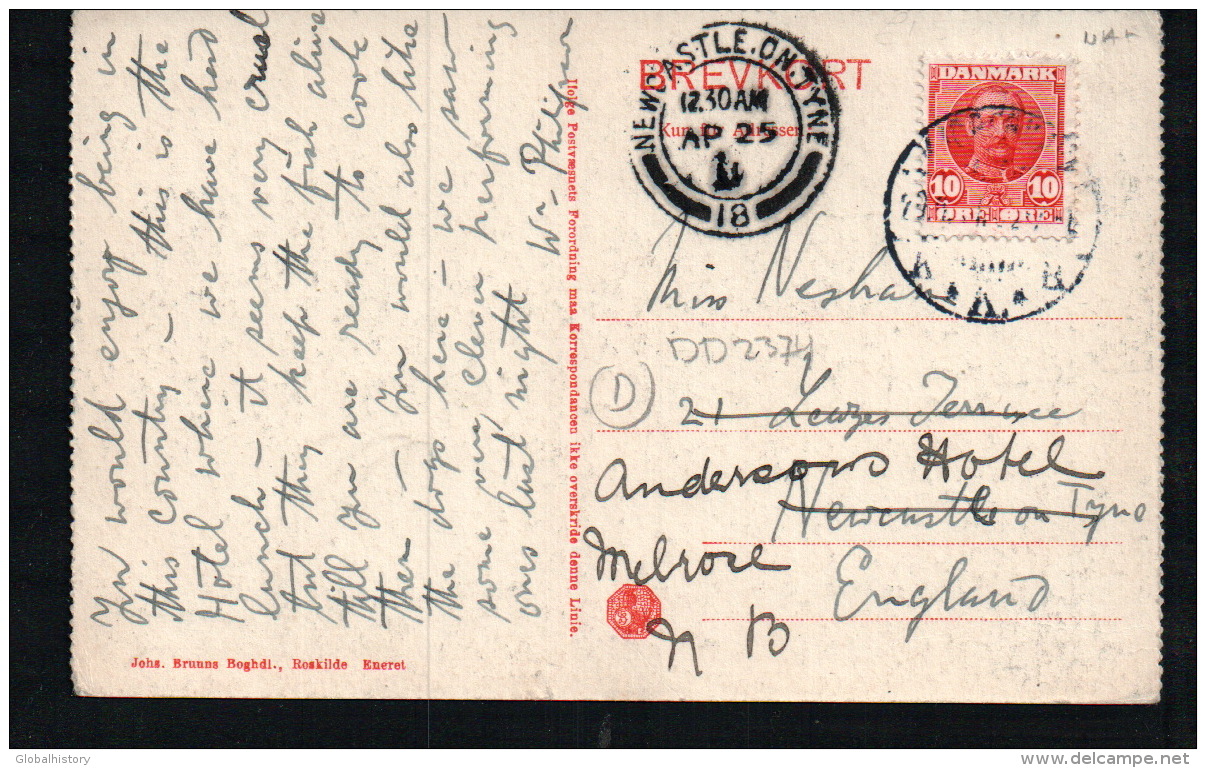 You would enjoy being in
this country – this is the
Hotel where we have had
lunch – it seems very cruel
but they keep the fish alive
till you are ready to cook
them – You would also like
the dogs here – we saw
some very clever performing
ones last night
Johs. Bruuns Boghdl., Roskilde Eneret
Ifølge Postvæsnets Forordning maa Korrespondancen ikke overskride denne Linie.
BREVKORT
NEWCASTLE.ON.TYNE
12.30AM
AP 25
11
18
DANMARK
10 10
ØRE ØRE
Miss
DD2374
D
21 Terrace
Andersons Hotel
Newcastle on Tyne
Melrose
England
N B
Globalhistory
www.delcampe.net